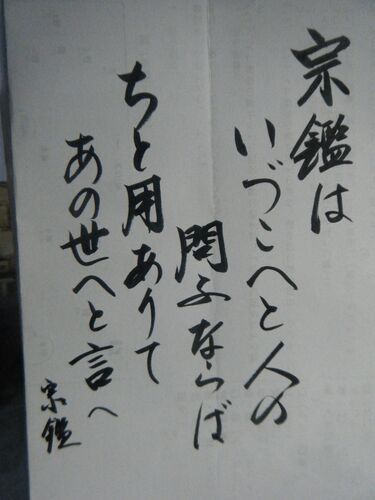 宗鑑は
いづこへと人の
問ふならば
ちと用ありて
あの世へと言へ
宗鑑